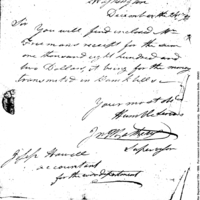 Washington
December the 24th
Sir
You will find inclosed Mr
Freemans receipt for the sum
one thousand eight hundred and
one Dollars, it being for the money
transmited in Bank bills
Your most obt
Humble Servt
Supervisor
Jos. Howell
accountant
for the war department